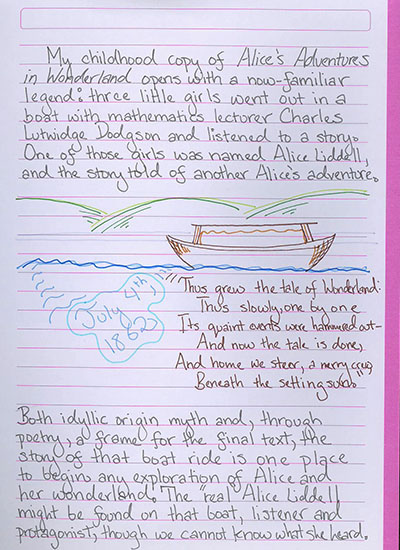 My childhood copy of Alice's Adventures
in Wonderland opens with a now-familiar
legend: three little girls went out in a
boat with mathematics lecturer Charles
Lutwidge Dodgson and listened to a story.
One of those girls was named Alice Liddell,
and the story told of another Alice's adventure.
July 4th,
1862
"Thus grew the tale of Wonderland:
Thus slowly, one by one
Its quaint events were hammered out—
And now the tale is done,
And home we steer, a merry crew,
Beneath the setting sun."
Both idyllic origin myth and, through
poetry, a frame for the final text, the
story of that boat ride is one place
to begin any exploration of Alice and
her wonderland. The "real" Alice Liddell
might be found on that boat, listener and
protagonist, though we cannot know what she heard.